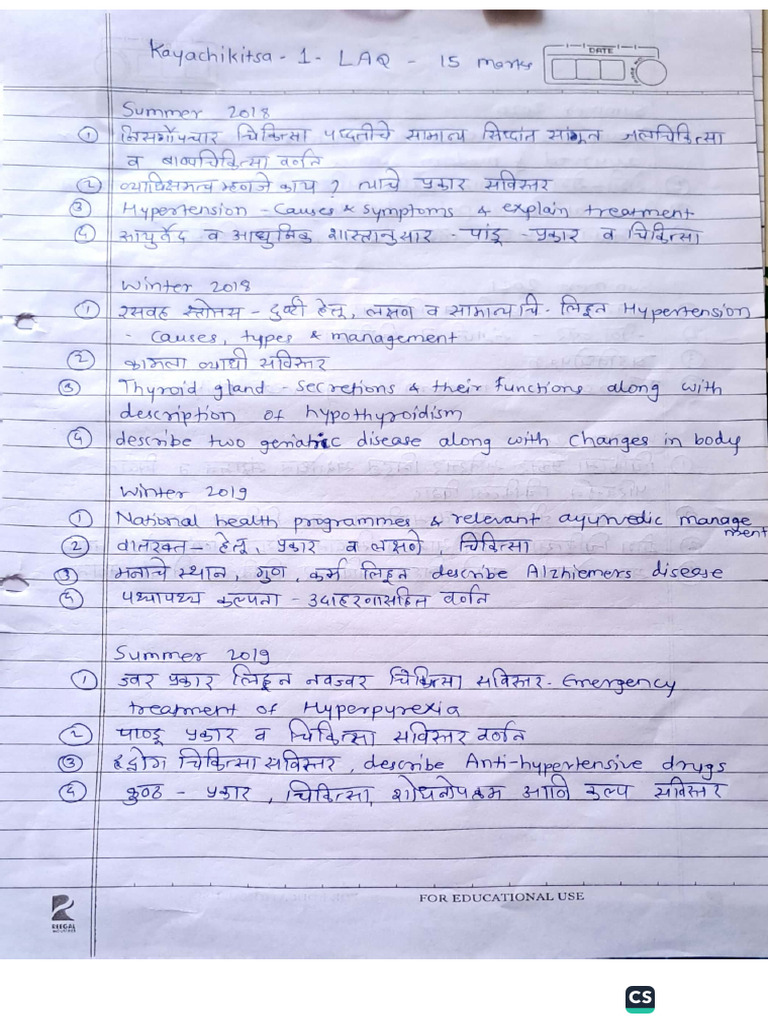 Kayachikitsa - 1 - LAQ - 15 marks
DATE
Summer 2018
① निसर्गोपचार चिकित्सा पध्दतीचे सामान्य सिध्दांत सांगून जलचिकित्सा
व बाष्पचिकित्सा वर्णन
② व्याधिक्षमत्व म्हणजे काय ? त्याचे प्रकार सविस्तर
③ Hypertension - Causes & symptoms & explain treatment
④ आयुर्वेद व आधुनिक शास्त्रानुसार - पांडू - प्रकार व चिकित्सा
Winter 2018
① रसवह स्त्रोतस - दुष्टी हेतू, लक्षण व सामान्य चि - लिहून Hypertension
- causes, types & management
② कामला व्याधी सविस्तर
③ Thyroid gland - secretions & their functions along with
description of hypothyroidism
④ describe two geriatric disease along with changes in body
Winter 2019
① National health programmes & relevant ayurvedic manage
ment
② वातरक्त - हेतू, प्रकार व लक्षणे, चिकित्सा
③ मनाचे स्थान, गुण, कर्म लिहून describe Alzhiemers disease
④ पथ्यापथ्य कल्पना - उदाहरणासहित वर्णन
Summer 2019
① ज्वर प्रकार लिहून नवज्वर चिकित्सा सविस्तर - Emergency
treatment of Hyperpyrexia
② पाण्डू प्रकार व चिकित्सा सविस्तर वर्णन
③ हृद्रोग चिकित्सा सविस्तर, describe Anti-hypertensive drugs
④ कुष्ठ - प्रकार, चिकित्सा, शोधनोपक्रम आणि कल्प सविस्तर
FOR EDUCATIONAL USE
REEGAL
CS